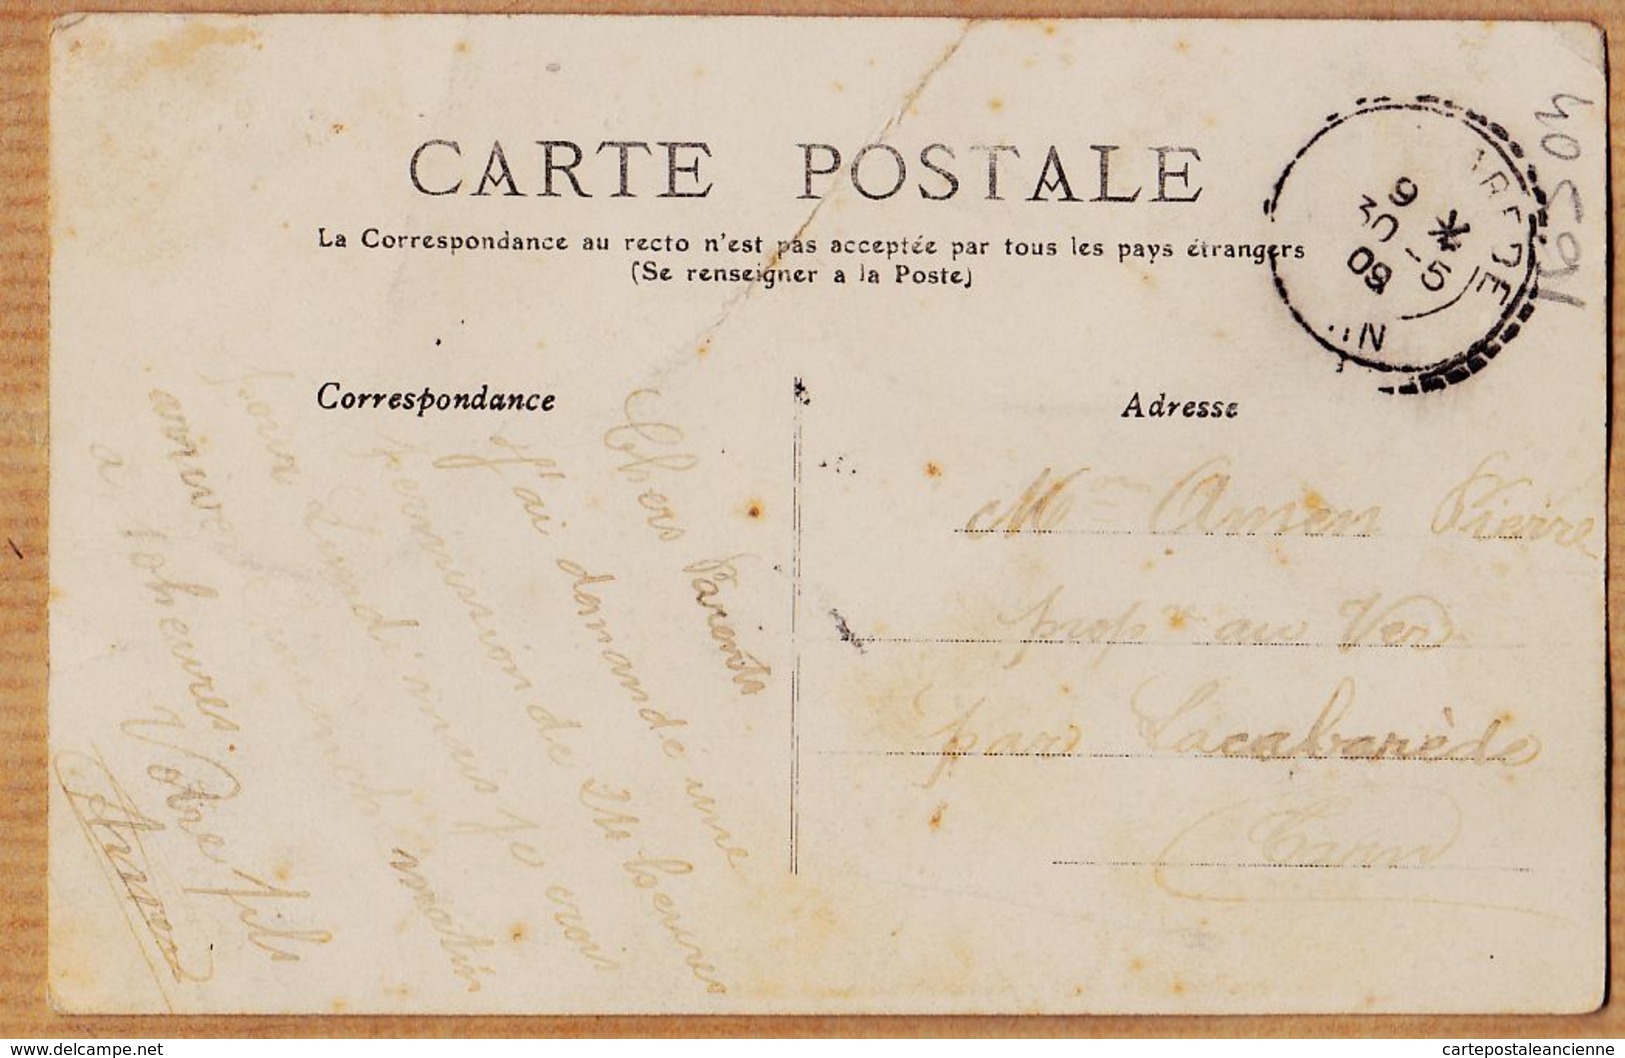 CARTE POSTALE
La Correspondance au recto n'est pas acceptée par tous les pays étrangers
(Se renseigner a la Poste)
Correspondance
Adresse
Chers Parents
J'ai demandé une
permission de 24 heures
pour Lundi mais je crois
matin
arriver
a 10 heures
Votre fils
Amen
Amen Pierre
prop re au Ver
par Lacabarède
Tarn
GARE DE
9 *
30 -5
09
40591
delcampe.net
cartepostaleancienne